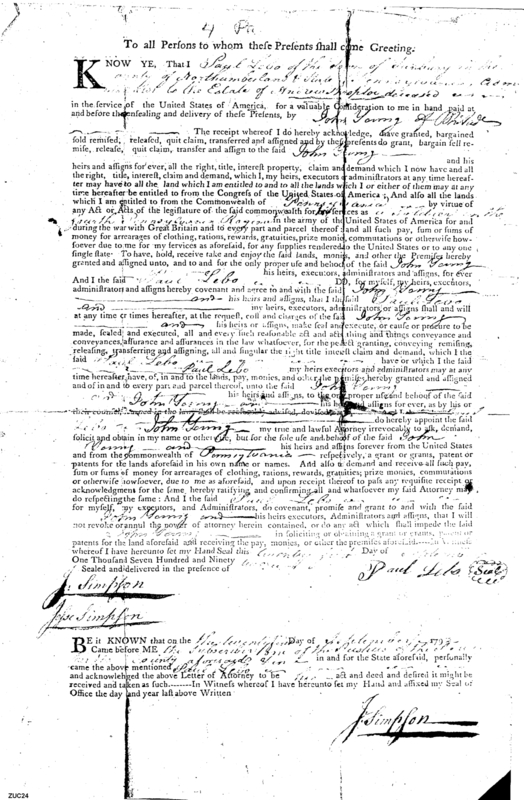 4
To all Perſons to whom theſe Preſents ſhall come Greeting.
KNOW YE, THAT I Paul Lebo of the Town of Sunbury in the
County of Northumberland & State of Pennsylvania Adm
to the Estate of Andrew deceased
in the ſervice of the United States of America, for a valuable Conſideration to me in hand paid at
and before the enſealing and delivery of theſe Preſents, by John Young
The receipt whereof I do hereby acknowledge, have granted, bargained
ſold remiſed, releaſed, quit claim, transferred and aſſigned and by theſe preſents do grant, bargain ſell re-
miſe, releaſe, quit claim, transfer and aſſign to the ſaid John Young
and his
heirs and aſſigns for ever, all the right, title, intereſt, property, claim and demand which I now have and all
the right, title, intereſt, claim and demand, which I, my heirs, executors or adminiſtrators at any time hereaf-
ter may have to all the land which I am entitled to and to all the lands which I or either of them may at any
time hereafter be entitled to from the Congreſs of the United States of America; And alſo all the lands
which I am entitled to from the Commonwealth of Pennsylvania by virtue of
any Act or Acts of the legiſlature of the ſaid commonwealth for ſervices as a Soldier in the
in the army of the United States of America for and
during the war with Great Britain and to every part and parcel thereof: and all ſuch pay, ſum or ſums of
money for arrearages of clothing, rations, rewards, gratuities, prize monies, commutations or otherwiſe how-
ſoever due to me for my ſervices as aforeſaid, or for any ſupplies rendered to the United States or to any one
ſingle ſtate To have, hold, receive take and enjoy the ſaid lands, monies, and other the Premiſes hereby
granted and aſſigned unto, and to and for the only proper uſe and behoof of the ſaid John Young
his heirs, executors, adminiſtrators and aſſigns, for ever
And I the ſaid Paul Lebo DO, for myſelf, my heirs, executors,
adminiſtrators and aſſigns hereby covenant and agree to and with the ſaid John Young
and his heirs and aſſigns, that I the ſaid Paul Lebo
and my heirs, executors, adminiſtrators or aſſigns ſhall and will
at any time or times hereafter, at the requeſt, coſt and charges of the ſaid John Young
and his heirs or aſſigns, make ſeal and execute, or cauſe or procure to be
made, ſealed and executed, all and every ſuch reaſonable act and acts thing and things conveyance and
conveyances, aſſurance and aſſurances in the law whatſoever, for the perfect granting, conveying remiſing,
releaſing, transferring and aſſigning, all and ſingular the right title intereſt claim and demand, which I the
ſaid Paul Lebo have or which I the ſaid
Paul Lebo my heirs executors and adminiſtrators may at any
time hereafter have, of, in and to the lands, pay, monies, and other the premiſes, hereby granted and aſſigned
and of in and to every part and parcel thereof, unto the ſaid John Young
his heirs and aſſigns, to the only proper uſe and behoof of the ſaid
and John Young and his heirs and aſſigns for ever, as by his or
do hereby appoint the ſaid
John Young my true and lawful Attorney irrevocably to aſk, demand,
ſolicit and obtain in my name or otherwiſe, but for the ſole uſe and behoof of the ſaid John
Young and his heirs and aſſigns forever from the United States
and from the commonwealth of Pennsylvania reſpectively, a grant or grants, patent or
patents for the lands aforeſaid in his own name or names. And alſo to demand and receive all ſuch pay,
ſum or ſums of money for arrearages of clothing, rations, rewards, gratuities, prize monies, commutations
or otherwiſe howſoever, due to me as aforeſaid, and upon receipt thereof to paſs any requiſite receipt or
acknowledgment for the ſame; hereby ratifying, and confirming all and whatſoever my ſaid Attorney may
do reſpecting the ſame: And I the ſaid Paul Lebo
for myſelf, my executors, and Adminiſtrators, do covenant, promiſe and grant to and with the ſaid
John Young and his heirs executors, Adminiſtrators and aſſigns, that I will
not revoke or annul the power of attorney herein contained, or do any act which ſhall impede the ſaid
John Young in ſoliciting or obtaining a grant or grants, patent or
patents for the land aforeſaid and receiving the pay, monies, or other the premiſes aforeſaid.---In Witneſs
whereof I have hereunto ſet my Hand Seal this Day of
One Thouſand Seven Hundred and Ninety
Sealed and delivered in the preſence of
Paul Lebo Seal
J. Simpson
Simpson
BE it KNOWN that on the Day of 1793
Came before ME the Subscriber One of the Justices of the
County aforesaid in and for the State aforeſaid, perſonally
came the above mentioned
and acknowledged the above Letter of Attorney to be act and deed and deſired it might be
received and taken as ſuch.-------In Witneſs whereof I have hereunto ſet my Hand and affixed my Seal of
Office the day and year laſt above Written
J. Simpson
ZUC24